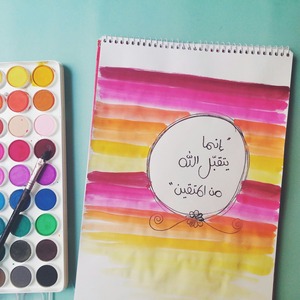 "إنما
يتقبّل الله
من المتقين"